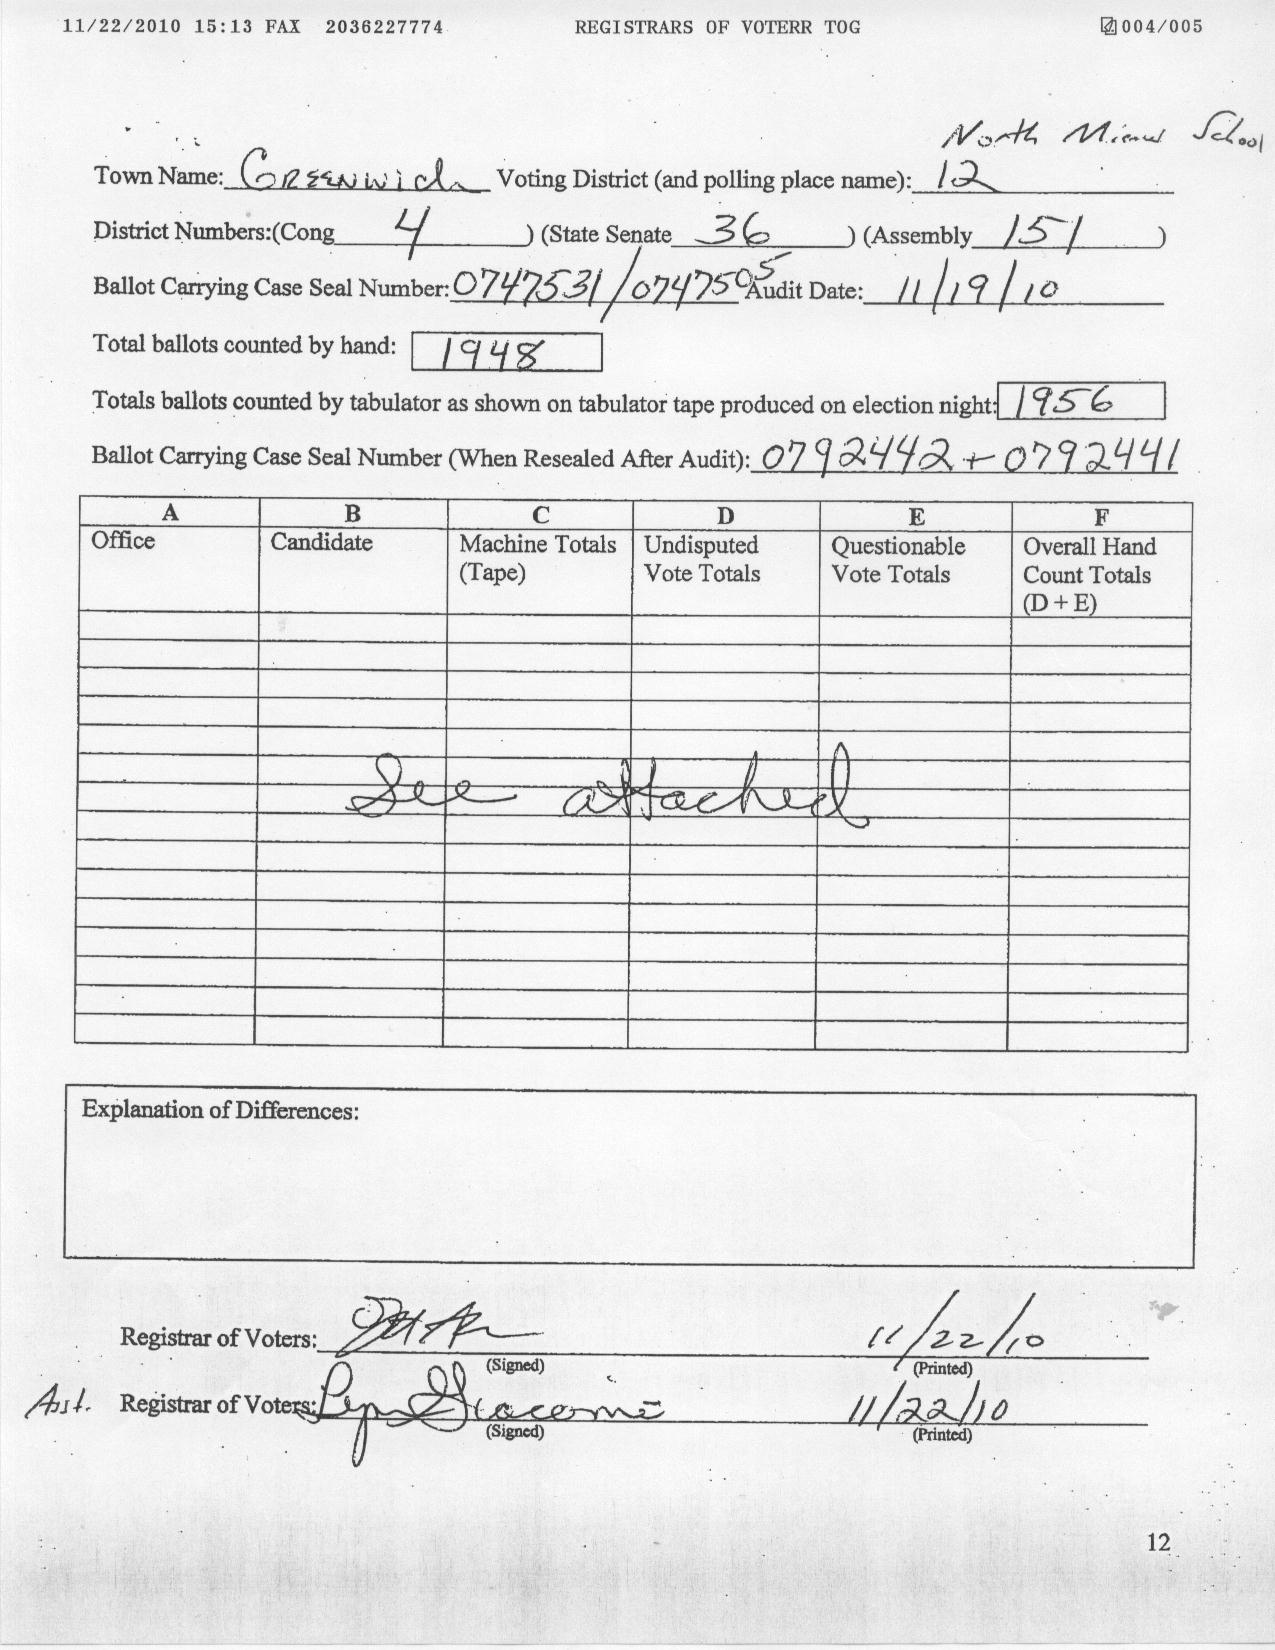 11/22/2010 15:13 FAX 2036227774 REGISTRARS OF VOTERR TOG 004/005
North Mianus School
Town Name: Greenwich Voting District (and polling place name): 12
District Numbers:(Cong 4 ) (State Senate 36 ) (Assembly 151 )
Ballot Carrying Case Seal Number: 0747531/0747505 Audit Date: 11/19/10
Total ballots counted by hand: 1948
Totals ballots counted by tabulator as shown on tabulator tape produced on election night: 1956
Ballot Carrying Case Seal Number (When Resealed After Audit): 0792442 + 0792441
A B C D E F
Office Candidate Machine Totals Undisputed Questionable Overall Hand
(Tape) Vote Totals Vote Totals Count Totals
(D + E)
See attached
Explanation of Differences:
Registrar of Voters: 11/22/10
(Signed) (Printed)
Asst. Registrar of Voters: 11/22/10
(Signed) (Printed)
12